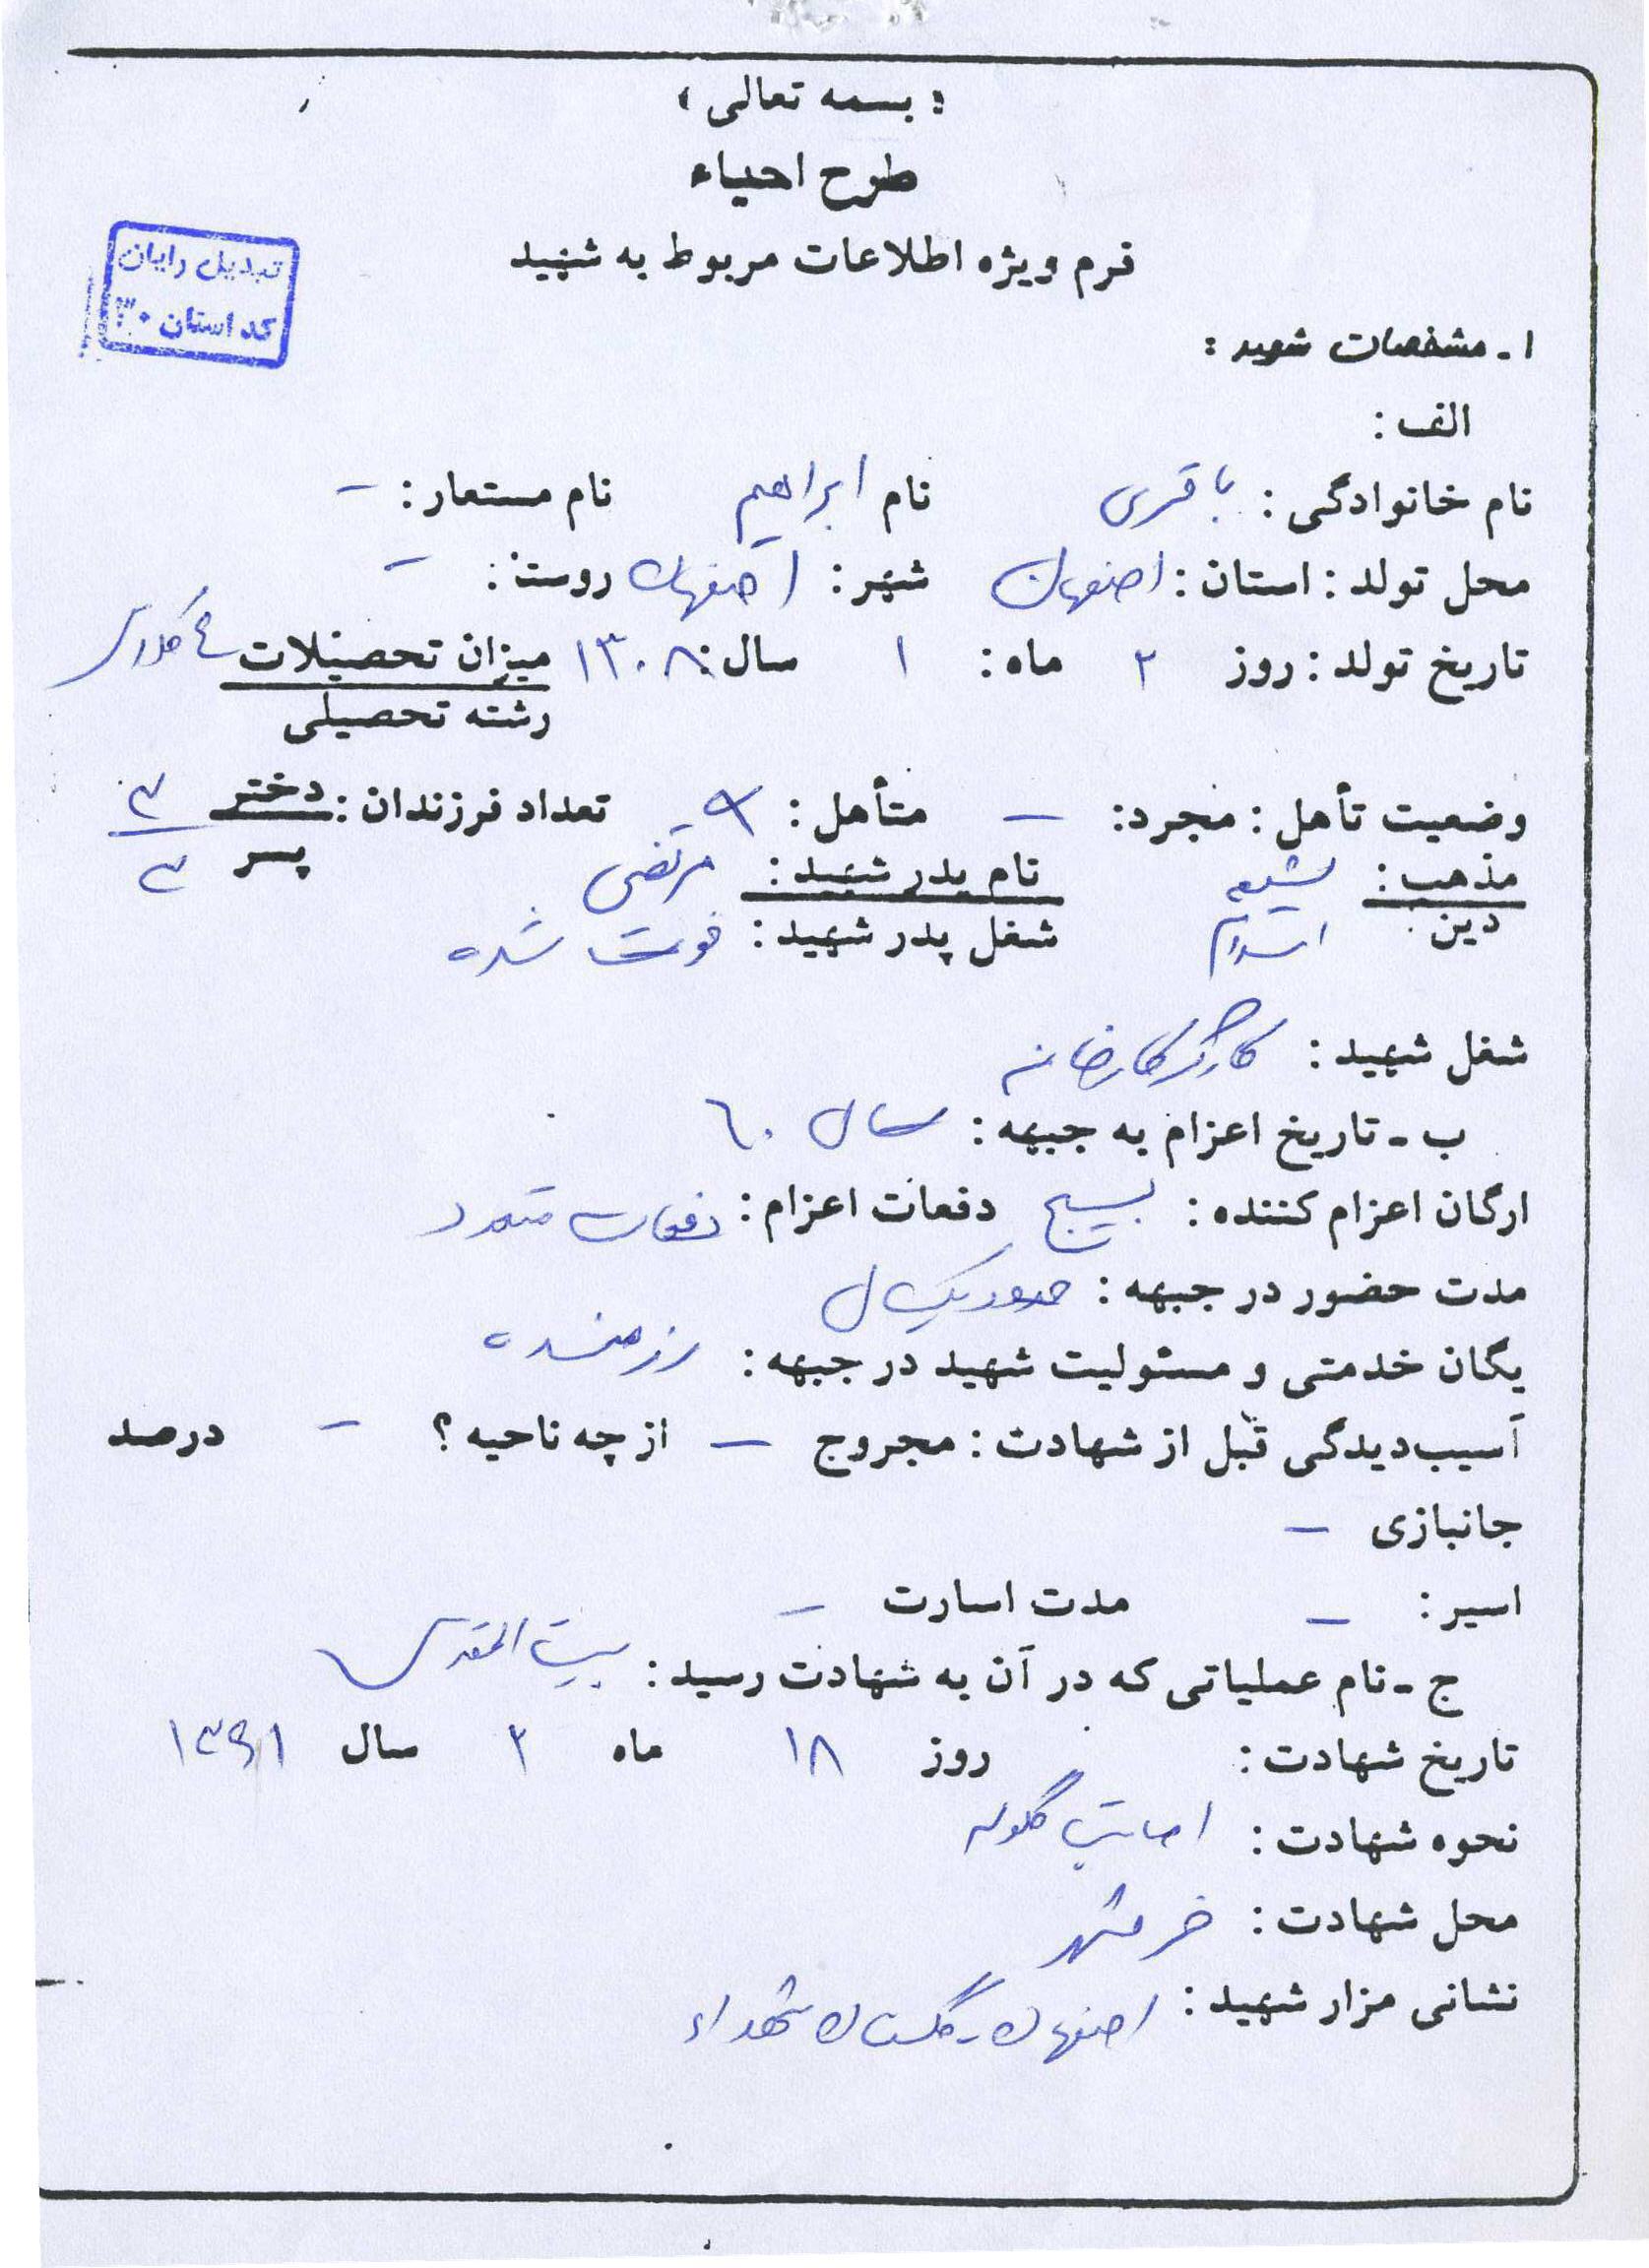 « بسمه تعالی »
طرح احیاء
فرم ویژه اطلاعات مربوط به شهید
تبدیل رایان
کد استان ۳۰
۱ـ مشخصات شهید :
الف :
نام خانوادگی : باقری نام ابراهیم نام مستعار : –
محل تولد : استان : اصفهان شهر : اصفهان روستا : –
تاریخ تولد : روز ۲ ماه : ۱ سال : ۱۳۰۸ میزان تحصیلات
رشته تحصیلی
وضعیت تأهل : مجرد : – متأهل : تعداد فرزندان : دختر ۳
پسر ۳
مذهب : شیعه نام پدر شهید : مرتضی
دین : اسلام شغل پدر شهید : فوت شده
شغل شهید : کارگر کارخانه
ب ـ تاریخ اعزام به جبهه : سال ۶۰
ارگان اعزام کننده : بسیج دفعات اعزام : دفعات متعدد
مدت حضور در جبهه : حدود یکسال
یگان خدمتی و مسئولیت شهید در جبهه : رزمنده
آسیب‌دیدگی قبل از شهادت : مجروح – از چه ناحیه ؟ – درصد
جانبازی –
اسیر : – مدت اسارت –
ج ـ نام عملیاتی که در آن به شهادت رسید : بیت المقدس
تاریخ شهادت : روز ۱۸ ماه ۲ سال ۱۳۶۱
نحوه شهادت : اصابت گلوله
محل شهادت : خرمشهر
نشانی مزار شهید : اصفهان - گلستان شهداء